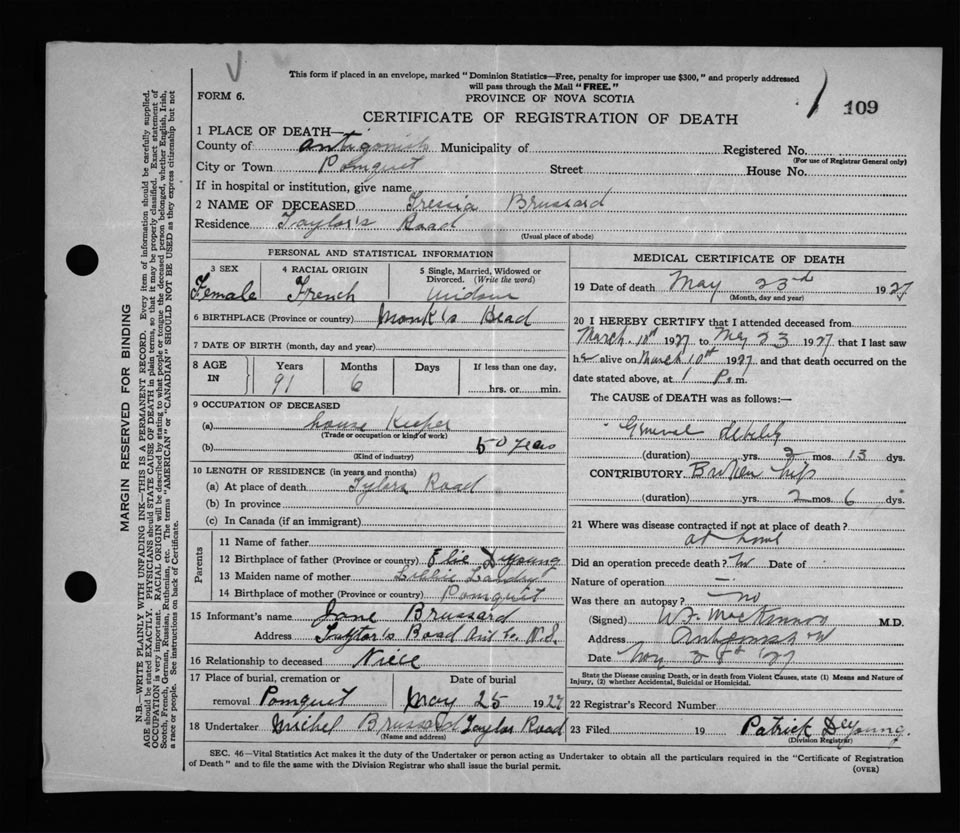 This form if placed in an envelope, marked "Dominion Statistics—Free, penalty for improper use $300," and properly addressed
will pass through the Mail "FREE."
FORM 6.
PROVINCE OF NOVA SCOTIA
109
CERTIFICATE OF REGISTRATION OF DEATH
1 PLACE OF DEATH—
County of Antigonish Municipality of Registered No.
(For use of Registrar General only)
City or Town Pomquet Street House No.
If in hospital or institution, give name
2 NAME OF DECEASED Tressia Brussard
Residence Taylor's Road
(Usual place of abode)
PERSONAL AND STATISTICAL INFORMATION
3 SEX 4 RACIAL ORIGIN 5 Single, Married, Widowed or
Divorced. (Write the word)
Female French Widow
6 BIRTHPLACE (Province or country) Monk's Head
7 DATE OF BIRTH (month, day and year)
8 AGE IN Years Months Days If less than one day,
91 6 hrs. or min.
9 OCCUPATION OF DECEASED
(a) house Keeper
(Trade or occupation or kind of work)
(b) 50 years
(Kind of industry)
10 LENGTH OF RESIDENCE (in years and months)
(a) At place of death Tylors Road
(b) In province
(c) In Canada (if an immigrant)
Parents
11 Name of father
12 Birthplace of father (Province or country) Elie DeYoung
13 Maiden name of mother Landry
14 Birthplace of mother (Province or country) Pomquet
15 Informant's name Jane Brussard
Address Road Ant Co. N.S.
16 Relationship to deceased Niece
17 Place of burial, cremation or Date of burial
removal Pomquet May 25 1927
18 Undertaker Michel Brussard Taylor Road
(Name and address)
MEDICAL CERTIFICATE OF DEATH
19 Date of death May 23rd 1927
(Month, day and year)
20 I HEREBY CERTIFY that I attended deceased from
March 10th 1927 to May 23 1927 that I last saw
h alive on March 10th 1927 and that death occurred on the
date stated above, at 1 P.m.
The CAUSE of DEATH was as follows:—
General debility
(duration) yrs. 2 mos. 13 dys.
CONTRIBUTORY. Broken hip
(duration) yrs. 2 mos. 6 dys.
21 Where was disease contracted if not at place of death?
at home
Did an operation precede death? Date of
Nature of operation —
Was there an autopsy? no
(Signed) W. F. MacKinnon M.D.
Address Antigonish
Date 27
State the Disease causing Death, or in death from Violent Causes, state (1) Means and Nature of
Injury, (2) whether Accidental, Suicidal or Homicidal.
22 Registrar's Record Number
23 Filed 19 Patrick DeYoung
(Division Registrar)
SEC. 46—Vital Statistics Act makes it the duty of the Undertaker or person acting as Undertaker to obtain all the particulars required in the "Certificate of Registration
of Death" and to file the same with the Division Registrar who shall issue the burial permit.
(OVER)
MARGIN RESERVED FOR BINDING
N.B.—WRITE PLAINLY WITH UNFADING INK—THIS IS A PERMANENT RECORD. Every item of information should be carefully supplied.
AGE should be stated EXACTLY. PHYSICIANS should STATE CAUSE OF DEATH in plain terms, so that it may be properly classified. Exact statement of
OCCUPATION is very important. RACIAL ORIGIN will be described by stating to what people or tongue the deceased person belonged, whether English, Irish,
Scotch, French, German, Russian, Ruthenian, etc. The terms "AMERICAN" or "CANADIAN" SHOULD NOT BE USED as they express citizenship but not
a race or people. See instructions on back of Certificate.